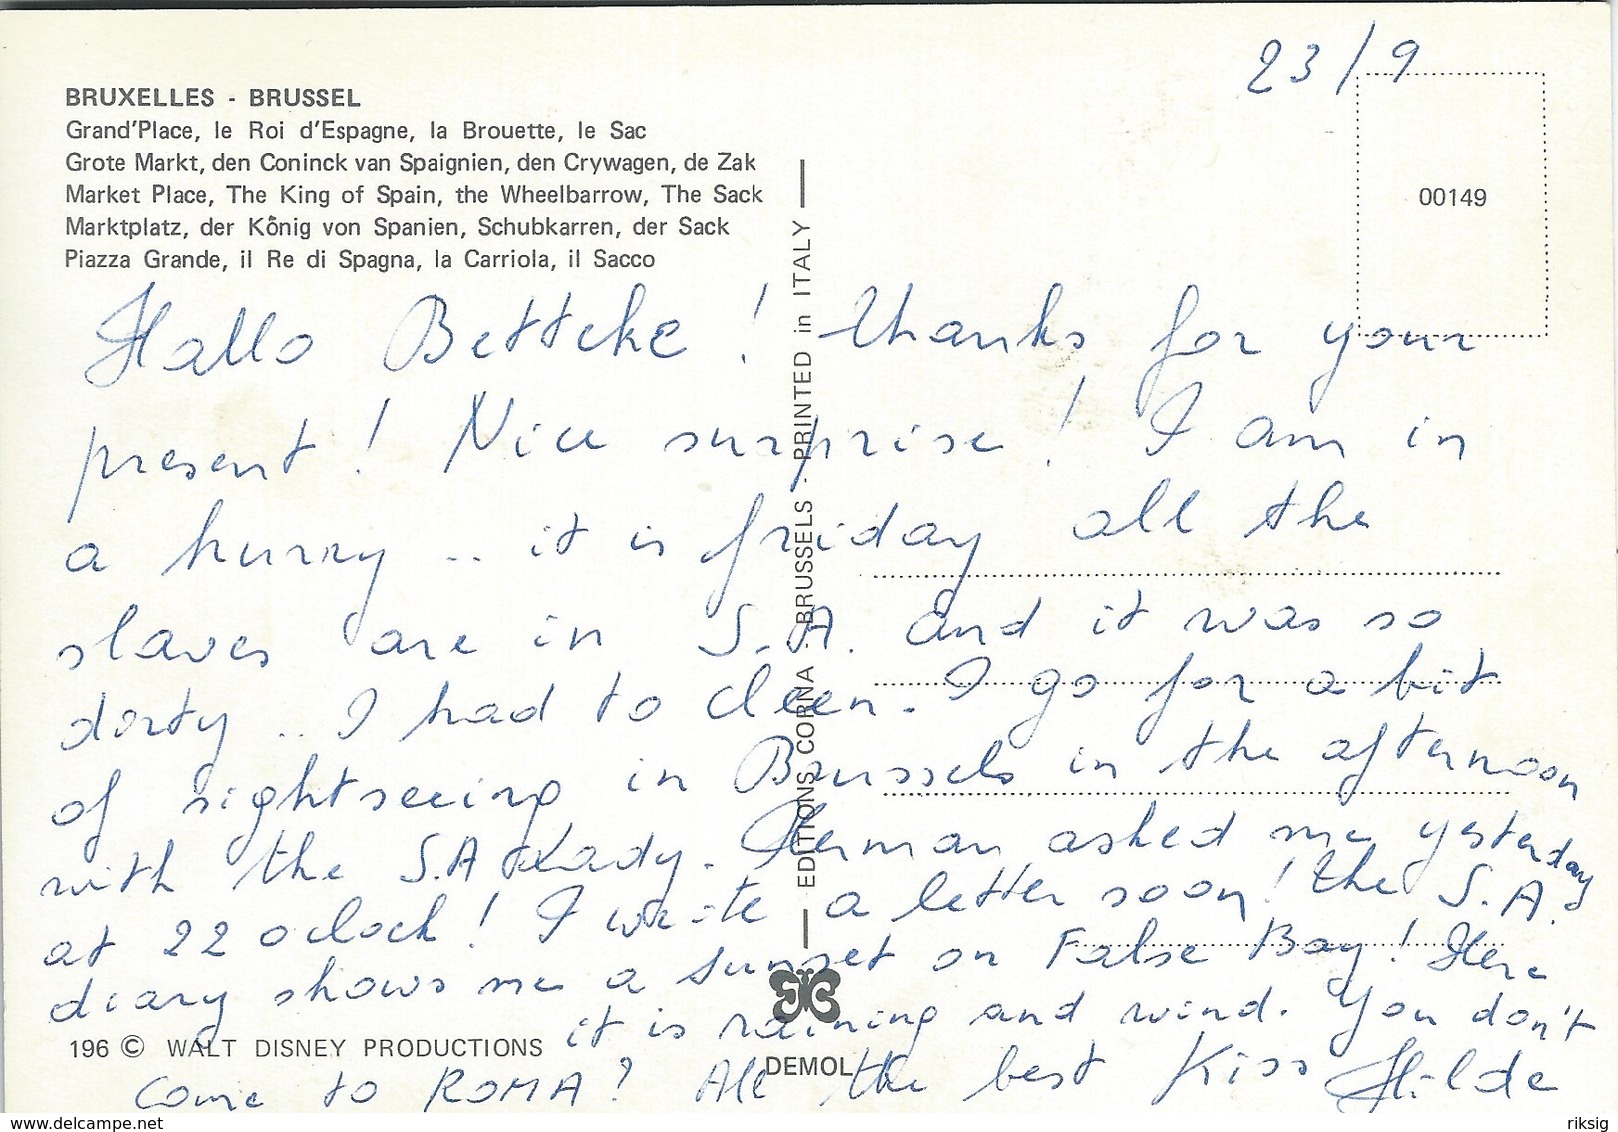 23/9
BRUXELLES - BRUSSEL
Grand'Place, le Roi d'Espagne, la Brouette, le Sac
Grote Markt, den Coninck van Spaignien, den Crywagen, de Zak
Market Place, The King of Spain, the Wheelbarrow, The Sack
Marktplatz, der König von Spanien, Schubkarren, der Sack
Piazza Grande, il Re di Spagna, la Carriola, il Sacco
00149
EDITIONS CORNA - BRUSSELS - PRINTED in ITALY
Hallo Betteke! thanks for your
present! Nice surprise! I am in
a hurry .. it is friday all the
slaves are in S.A. and it was so
dirty .. I had to cleen. I go for a bit
of sightseeing in Brussels in the afternoon
with the S.A Lady. Herman asked me yesterday
at 22 oclock! I write a letter soon! the S.A.
diary shows me a sunset on False Bay! Here
it is raining and wind. You don't
come to ROMA? All the best Kiss Hilde
196 © WALT DISNEY PRODUCTIONS
DEMOL
www.delcampe.net
riksig